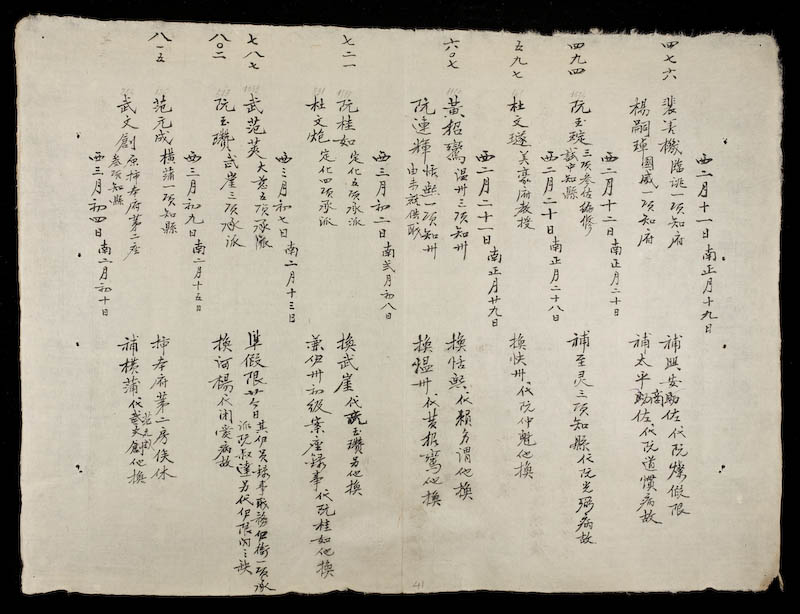 西二月十一日 南正月十九日
四七六 裴美機 臨洮一項知府 補興安助佐代阮燦假限
楊嗣璋 國威一項知府 補太平商助佐代阮道慣病故
西二月十二日 南正月二十日
四九四 阮玉琔 三項叅佐編修 試中知縣 補至灵三項知縣代阮光弼病故
西二月二十日 南正月二十八日
五九七 杜文璲 美豪府教授 換快州代阮仲魁他換
西二月二十一日 南正月廿九日
六〇七 黃招鸞 温州三項知州 換恬熙代賴多謂他換
阮連輝 恬熙一項知州 換温州代黃招鸞他換
西三月初二日 南弍月初八日
七二一 阮桂如 定化五項承派 換武崖代阮玉瓚另他換
杜文炮 定化四項承派 兼伊州初級案座錄事代阮桂如他換
西三月初七日 南二月十三日
七八七 武范英 大慈五項承派 準假限廿今日其伊員錄事職務伊衙一項承
派阮叔達另代伊限內之缺
八〇二 阮玉瓚 武崖三項承派 換河楊代病故
西三月初九日 南二月十五日
八一五 范元成 橫蒲一項知縣 柿本府第二房佚休
武文創 原柿本府第二座叅項知縣 補橫蒲代武文創他換
西三月初四日 南二月初十日
41